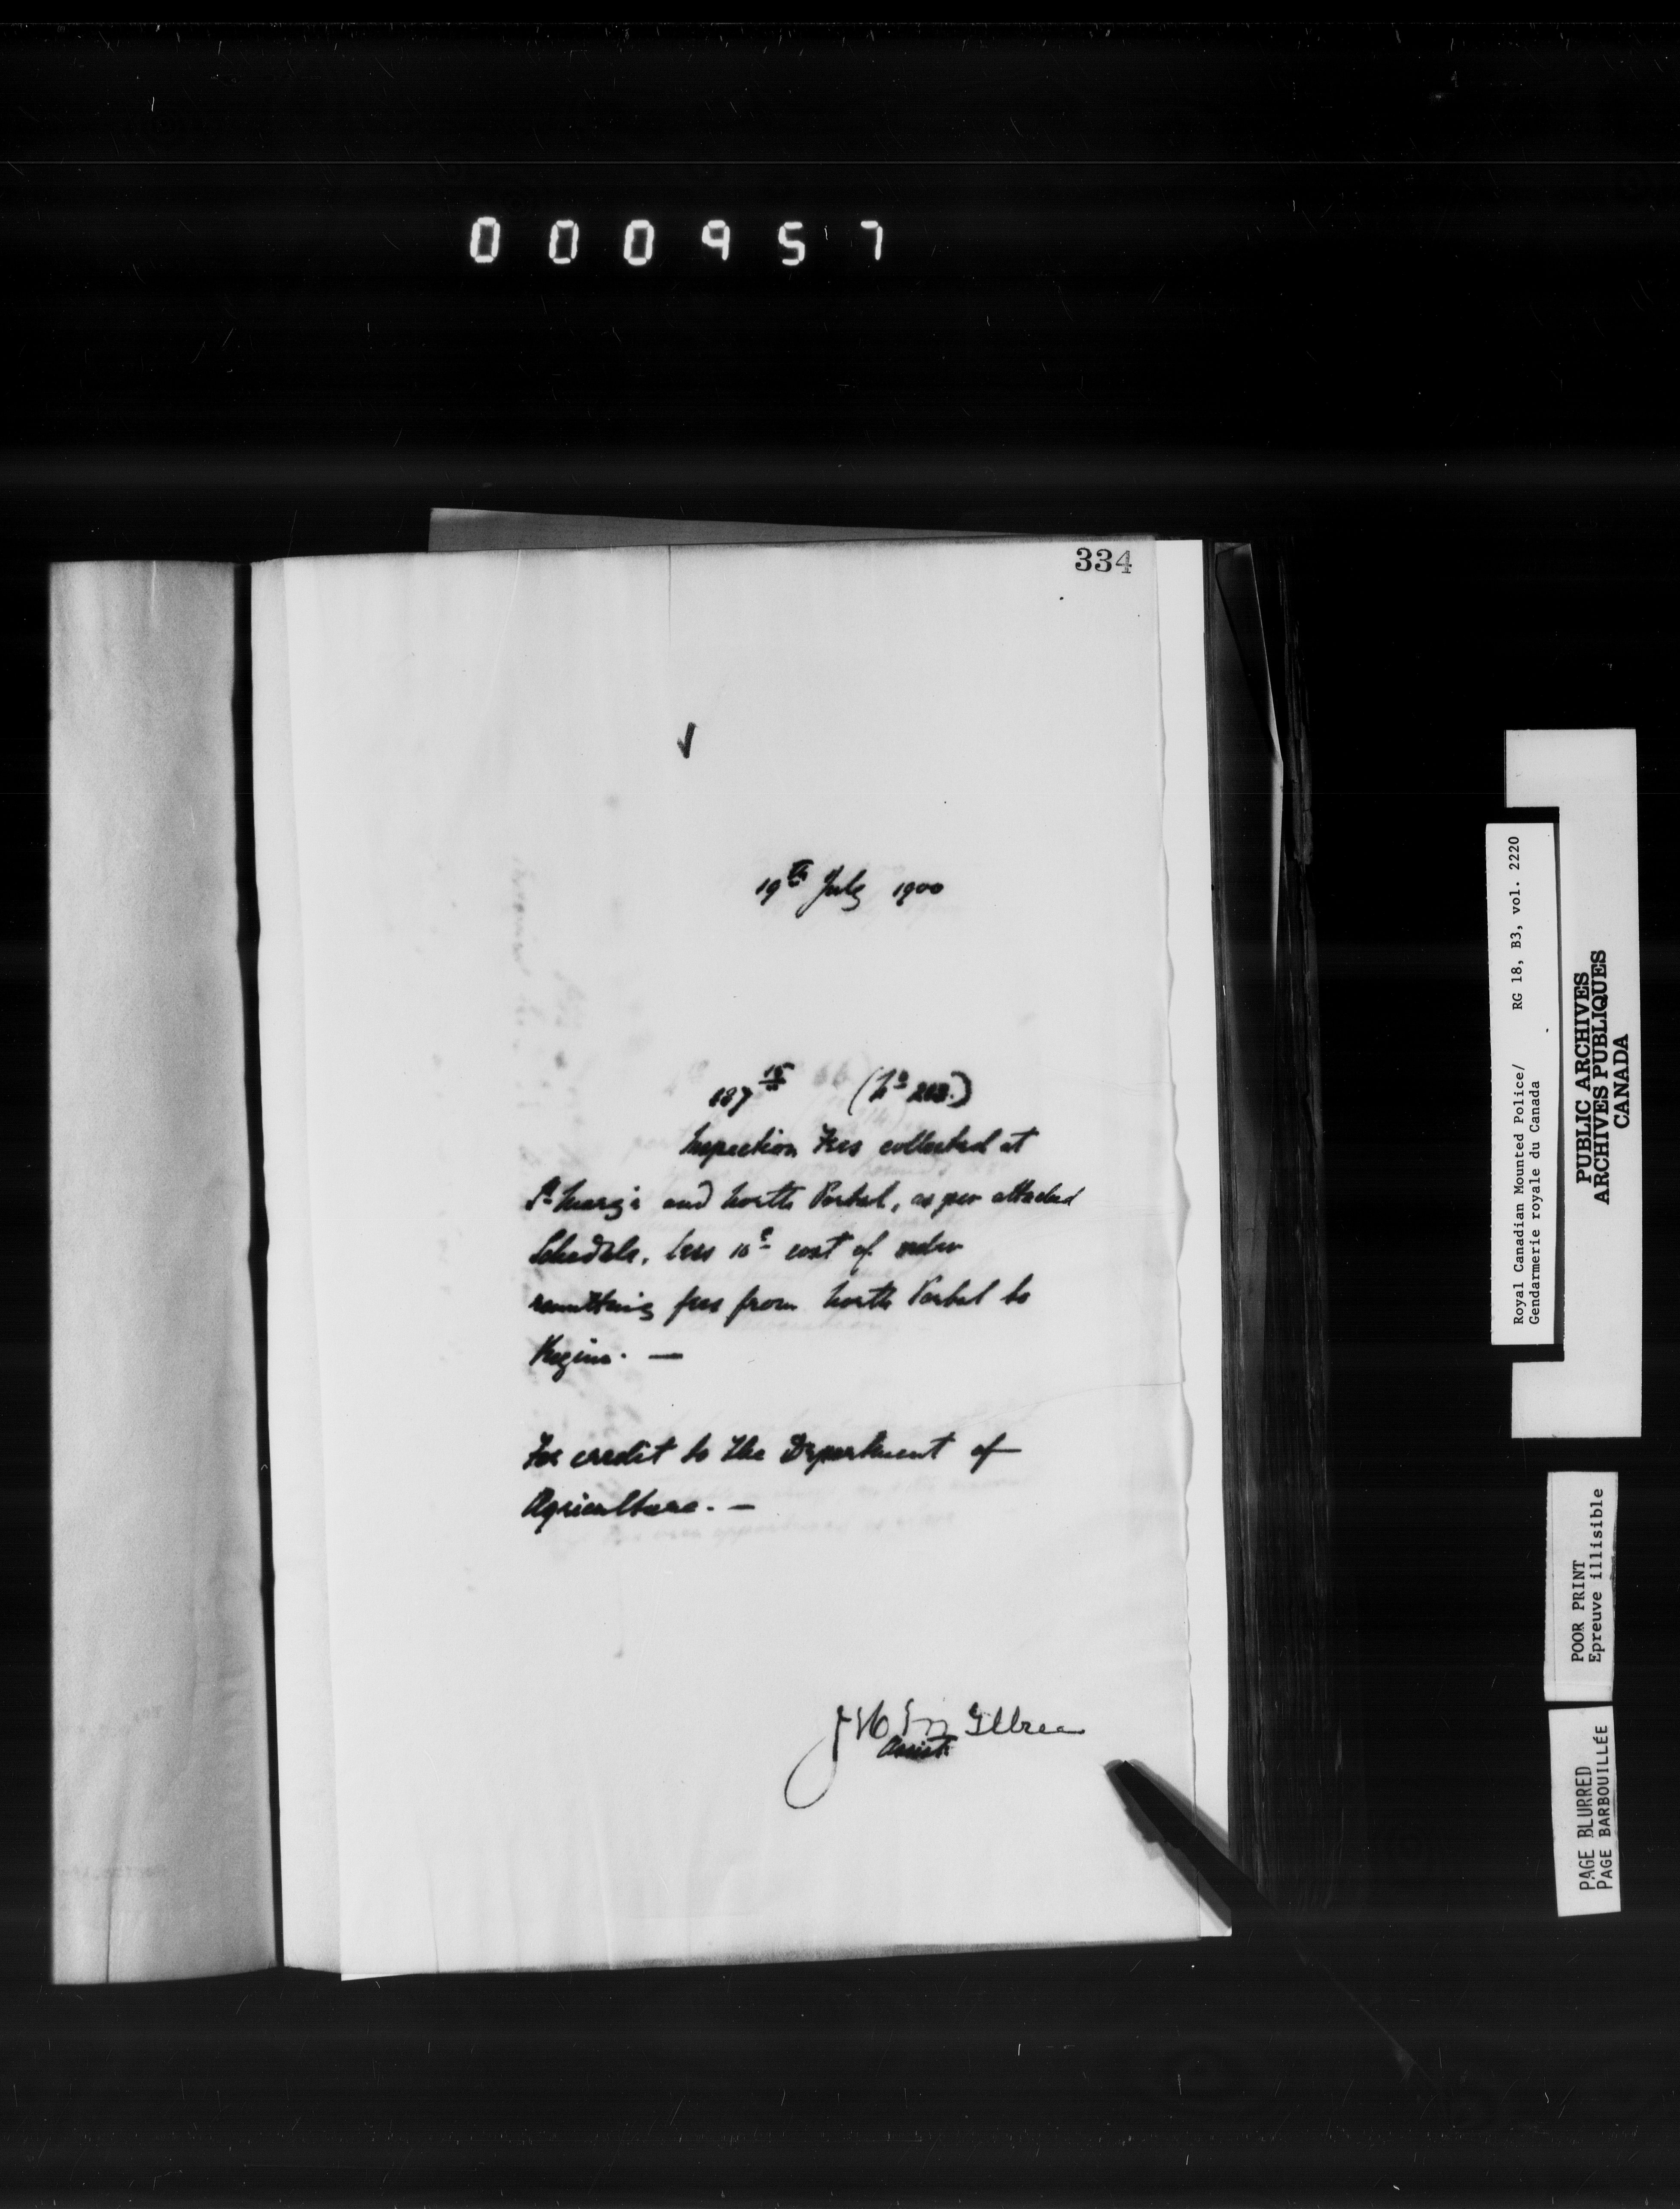 000957
334
19th July 1900
187 15 (No 213.)
Inspection Fees collected at
St Mary's and North Portal, as per attached
Schedule, less 10c cost of order
remitting fees from North Portal to
Regina. —
For credit to the Department of
Agriculture. —
Assist.
Royal Canadian Mounted Police/ RG 18, B3, vol. 2220
Gendarmerie royale du Canada
PUBLIC ARCHIVES
ARCHIVES PUBLIQUES
CANADA
POOR PRINT
Epreuve illisible
PAGE BLURRED
PAGE BARBOUILLÉE